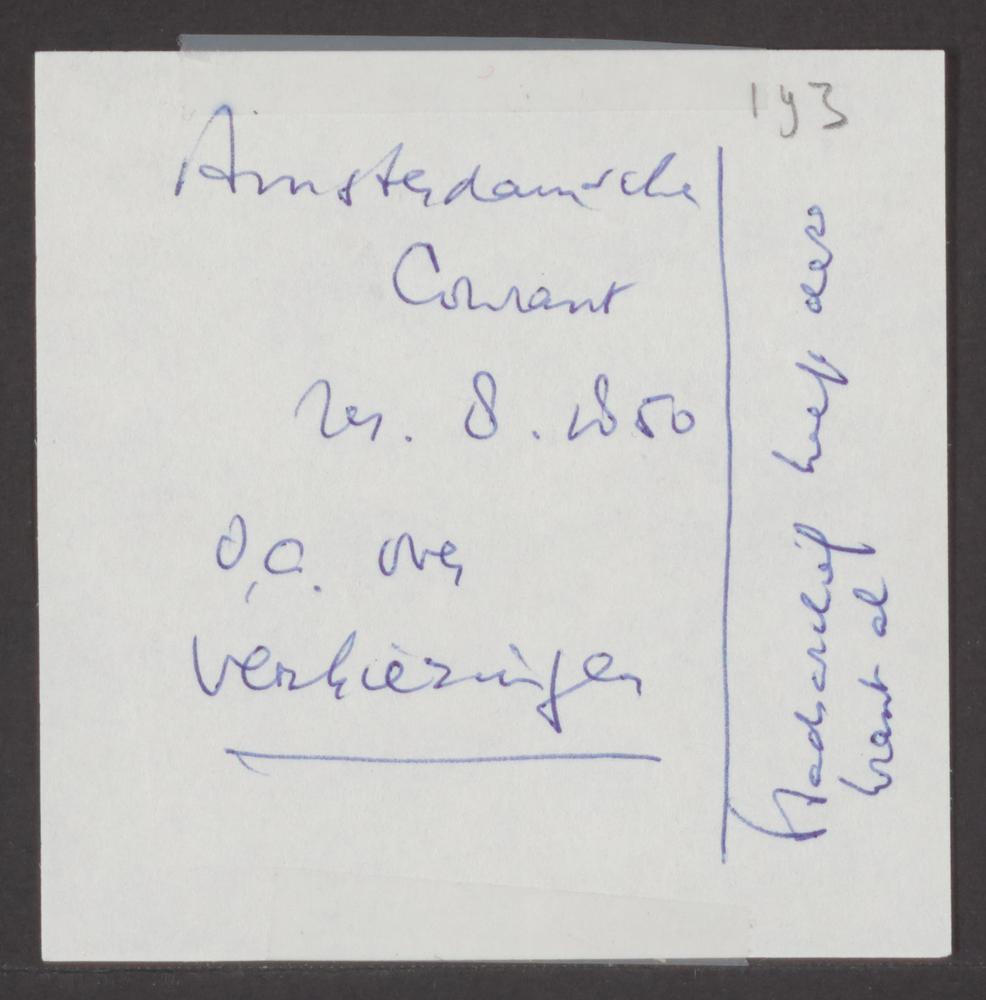 193
Amsterdamsche
Courant
8.1850
o.a. over
verkiezingen
Stadsarchief heeft deze
krant al